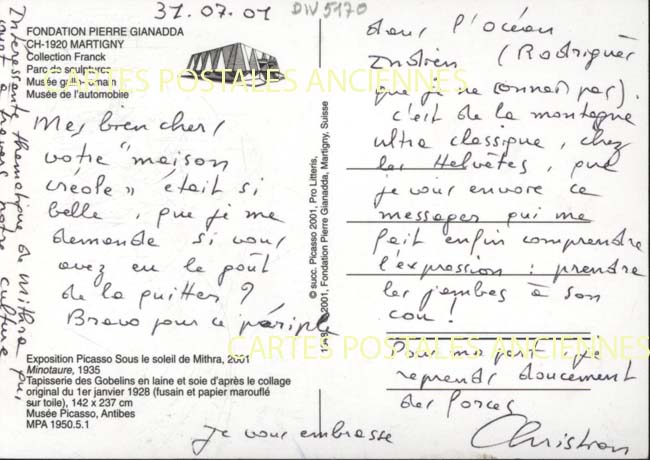 31.07.01
DIV 5170
FONDATION PIERRE GIANADDA
CH-1920 MARTIGNY
Collection Franck
Parc de sculptures
Musée gallo-romain
Musée de l'automobile
CARTES POSTALES ANCIENNES
Mes bien chers
votre "maison
créole" était si
belle, que je me
demande si vous
avez eu le goût
de la quitter ?
Bravo pour ce périple
Exposition Picasso Sous le soleil de Mithra, 2001
Minotaure, 1935
Tapisserie des Gobelins en laine et soie d'après le collage
original du 1er janvier 1928 (fusain et papier marouflé
sur toile), 142 x 237 cm
Musée Picasso, Antibes
MPA 1950.5.1
© succ. Picasso 2001, Pro Litteris,
2001, Fondation Pierre Gianadda, Martigny, Suisse
dans l'océan
Indien (Rodrigues
que je ne connais pas).
c'est de la montagne
ultra classique, chez
les Helvètes, que
je vous envoie ce
message qui me
fait enfin comprendre
l'expression : prendre
les jambes à son
cou !
CARTES POSTALES ANCIENNES
Pour ma part, je
reprends doucement
des forces
je vous embrasse
Christian
Intéressante thématique de Mithra
à travers notre culture